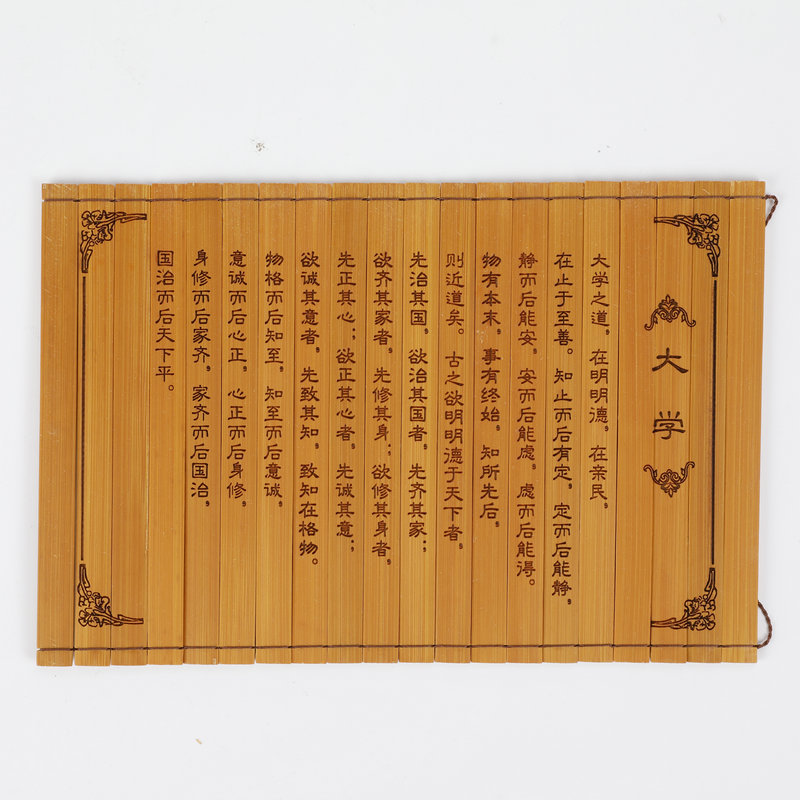 大学
大学之道，在明明德，在亲民，
在止于至善。知止而后有定，定而后能静，
静而后能安，安而后能虑，虑而后能得。
物有本末，事有终始，知所先后，
则近道矣。古之欲明明德于天下者，
先治其国，欲治其国者，先齐其家；
欲齐其家者，先修其身；欲修其身者，
先正其心；欲正其心者，先诚其意；
欲诚其意者，先致其知，致知在格物。
物格而后知至，知至而后意诚，
意诚而后心正，心正而后身修，
身修而后家齐，家齐而后国治，
国治而后天下平。